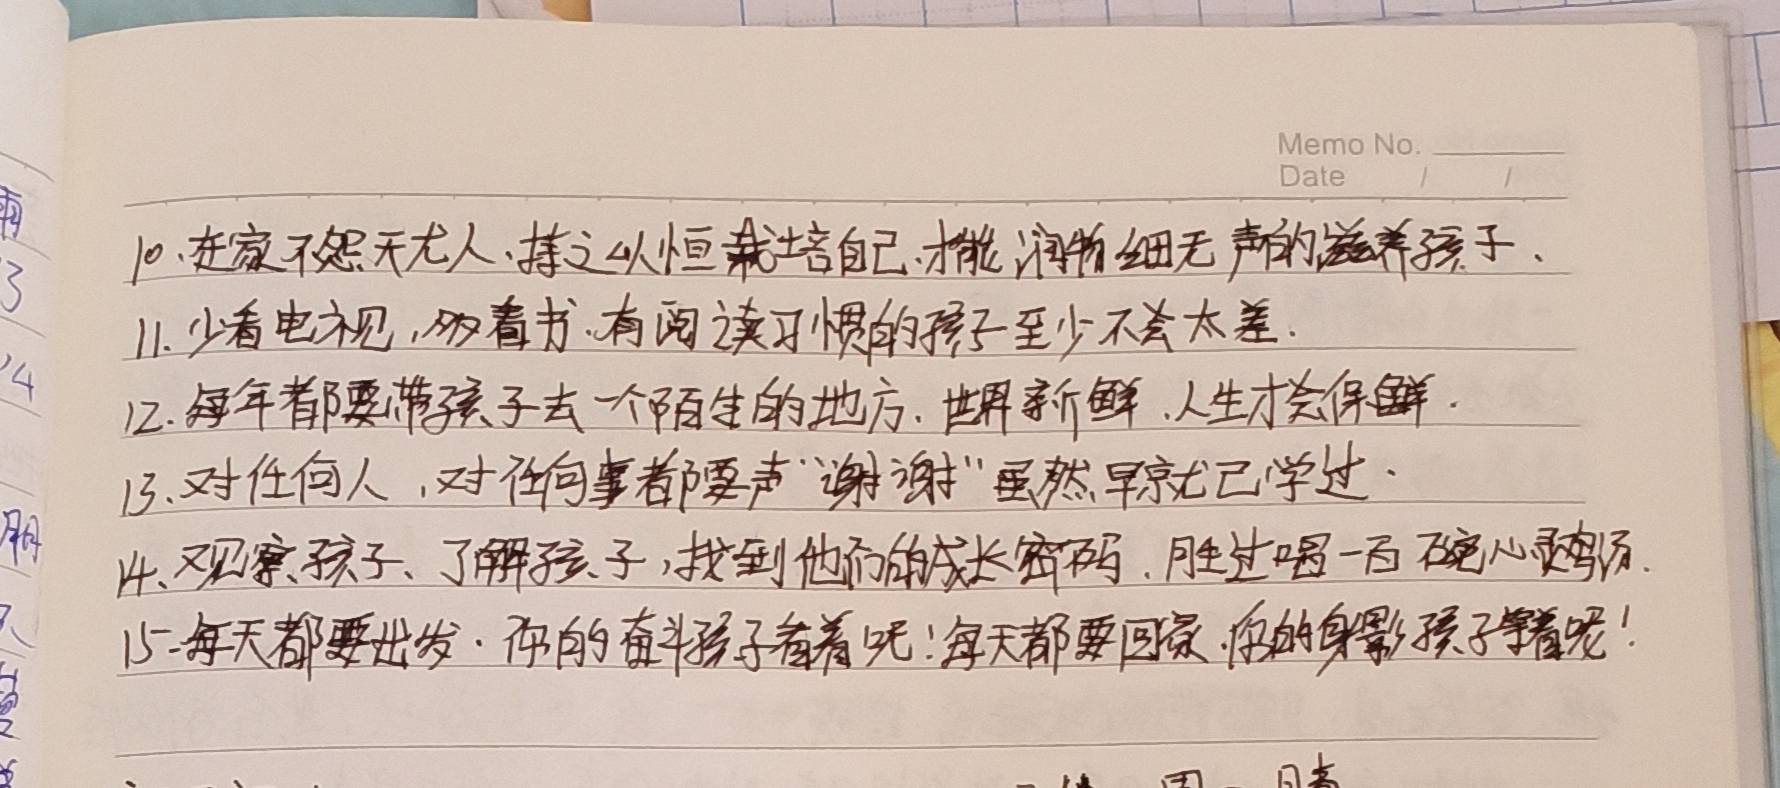 Memo No.
Date / /
10.在家不怨天尤人、持之以恒栽培自己.才能润物细无声的滋养孩子、
11.少看电视,多看书.有阅读习惯的孩子至少不会太差.
12.每年都要带孩子去一个陌生的地方.世界新鲜.人生才会保鲜.
13.对任何人,对任何事都要声“谢谢”虽然早就已学过.
14.观察孩子、了解孩子,找到他们的成长密码.胜过喝一百碗心灵鸡汤.
15.每天都要出发.你的奋斗孩子看着呢!每天都要回家.你的身影孩子学着呢!
雨
3
24
朋
周一 晴